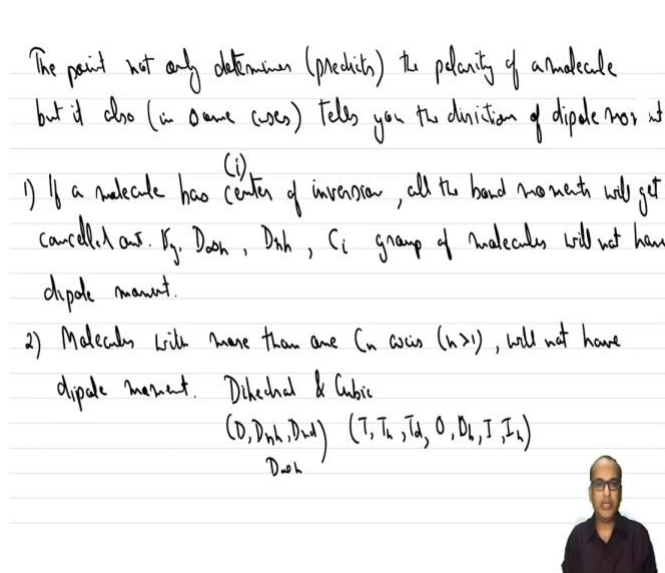 The point not only determines (predicts) the polarity of a molecule
but it also (in some cases) tells you the direction of dipole mom nt
(i)
1) If a molecule has center of inversion, all the bond moments will get
cancelled out. Eg. D∞h, Dnh, Ci group of molecules will not have
dipole moment.
2) Molecules with more than one Cn axis (n>1), will not have
dipole moment. Dihedral & Cubic
(D, Dnh, Dnd) (T, Th, Td, O, Oh, I, Ih)
D∞h